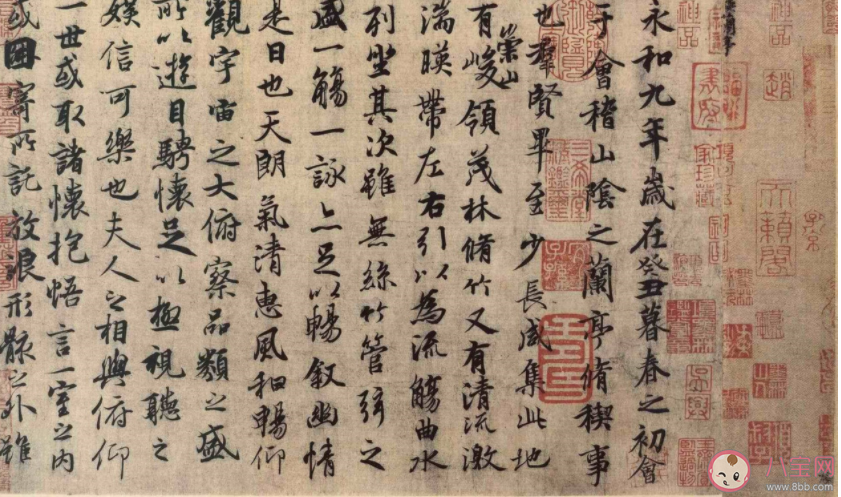 永和九年歲在癸丑暮春之初會
于會稽山陰之蘭亭脩稧事
也羣賢畢至少長咸集此地
有崇山峻領茂林脩竹又有清流激
湍暎帶左右引以為流觴曲水
列坐其次雖無絲竹管弦之
盛一觴一詠亦足以暢敘幽情
是日也天朗氣清惠風和暢仰
觀宇宙之大俯察品類之盛
所以遊目騁懷足以極視聽之
娛信可樂也夫人之相與俯仰
一世或取諸懷抱悟言一室之內
或因寄所託放浪形骸之外雖
八宝网
www.8bb.com